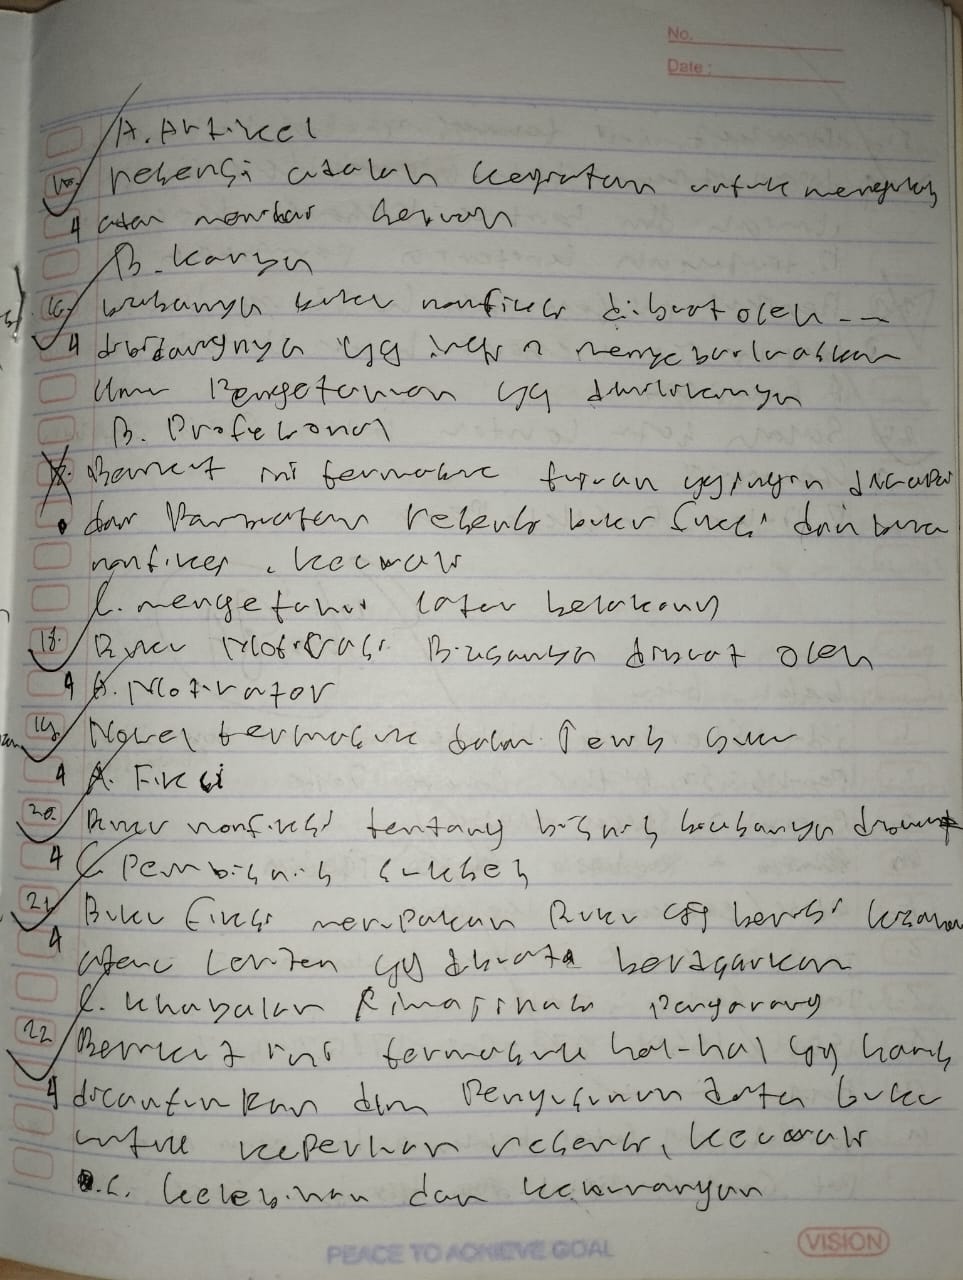 No.
Date:
A. Artikel
15. resensi adalah kegiatan untuk mengulas
4 atau menilai
B. Karya
16. buku nonfiksi dibuat oleh --
4 dibidangnya yg ingin menyebarluaskan
ilmu Pengetahuan yg dimilikinya
B. Profesional
Berikut ini termasuk tujuan yg ingin dicapai
dari resensi buku fiksi dan buku
nonfiksi, kecuali
C. mengetahui latar belakang
18. Buku Motivasi Biasanya dibuat oleh
4 A. Motivator
19. Novel termasuk dalam Jenis buku
4 A. Fiksi
20. Buku nonfiksi tentang bisnis
4 C Pembisnis sukses
21. Buku fiksi merupakan Buku yg berisi
4 yg berdasarkan
C. Khayalan / imajinasi pengarang
22 Berikut ini termasuk hal-hal yg harus
4 dicantumkan dlm Penyusunan data buku
untuk keperluan resensi, kecuali
C. kelebihan dan kekurangan
PEACE TO ACHIEVE GOAL
VISION